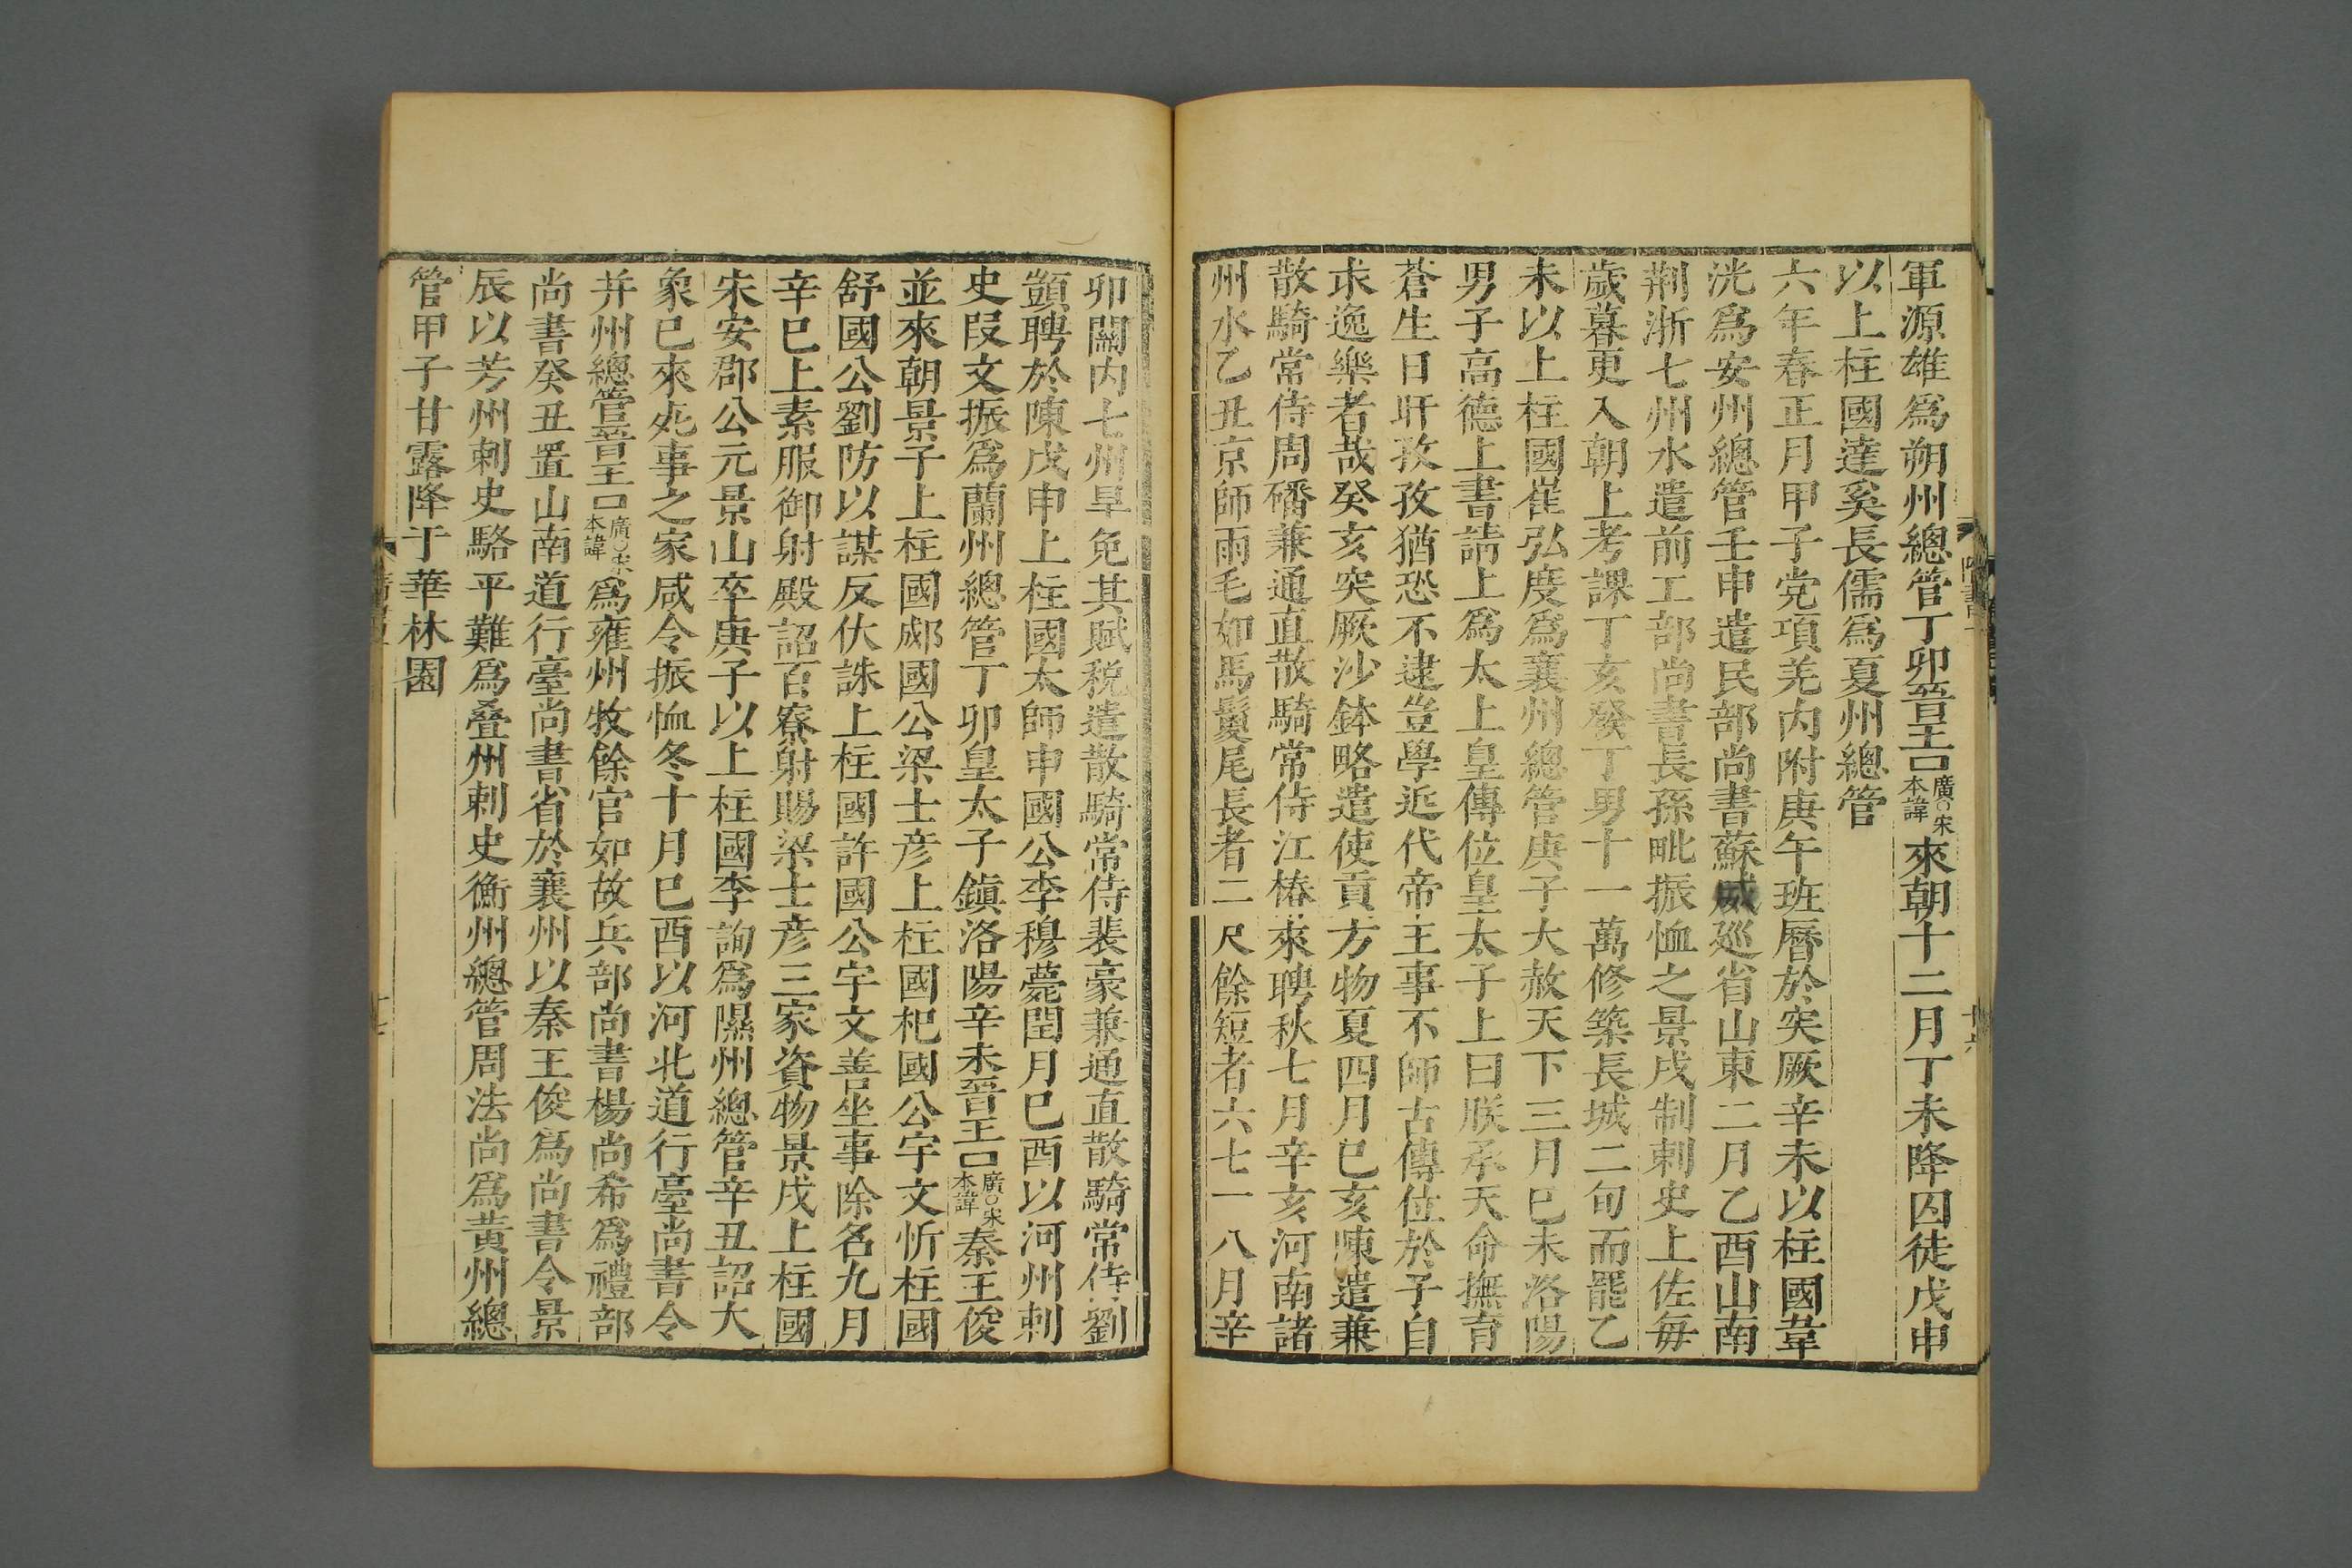 軍源雄爲朔州總管丁卯晉王口廣○宋本諱來朝十二月丁未降囚徒戊申
以上柱國達奚長儒爲夏州總管
六年春正月甲子党項羌内附庚午班曆於突厥辛未以柱國韋
洸爲安州總管壬申遣民部尚書蘇威廵省山東二月乙酉山南
荆浙七州水遣前工部尚書長孫毗振恤之景戌制刺史上佐每
歲暮更入朝上考課丁亥發丁男十一萬修築長城二旬而罷乙
未以上柱國崔弘度爲襄州總管庚子大赦天下三月己未洛陽
男子高德上書請上爲太上皇傳位皇太子上曰朕承天命撫育
蒼生日旰孜孜猶恐不逮豈學近代帝王事不師古傳位於子自
求逸樂者哉癸亥突厥沙鉢略遣使貢方物夏四月己亥陳遣兼
散騎常侍周磻兼通直散騎常侍江椿來聘秋七月辛亥河南諸
州水乙丑京師雨毛如馬鬉尾長者二尺餘短者六七一八月辛
卯關内七州旱免其賦稅遣散騎常侍裴豪兼通直散騎常侍劉
顗聘於陳戊申上柱國太師申國公李穆薨閏月己酉以河州刺
史叚文振爲蘭州總管丁卯皇太子鎮洛陽辛未晉王口廣○宋本諱秦王俊
並來朝景子上柱國郕國公梁士彦上柱國杞國公宇文忻柱國
舒國公劉防以謀反伏誅上柱國許國公宇文善坐事除名九月
辛巳上素服御射殿詔百寮射賜梁士彦三家資物景戌上柱國
宋安郡公元景山卒庚子以上柱國李詢爲隰州總管辛丑詔大
象已來死事之家咸令振恤冬十月己酉以河北道行臺尚書令
并州總管晉王口廣○宋本諱爲雍州牧餘官如故兵部尚書楊尚希爲禮部
尚書癸丑置山南道行臺尚書省於襄州以秦王俊爲尚書令景
辰以芳州刺史駱平難爲叠州刺史衡州總管周法尚爲黃州總
管甲子甘露降于華林園